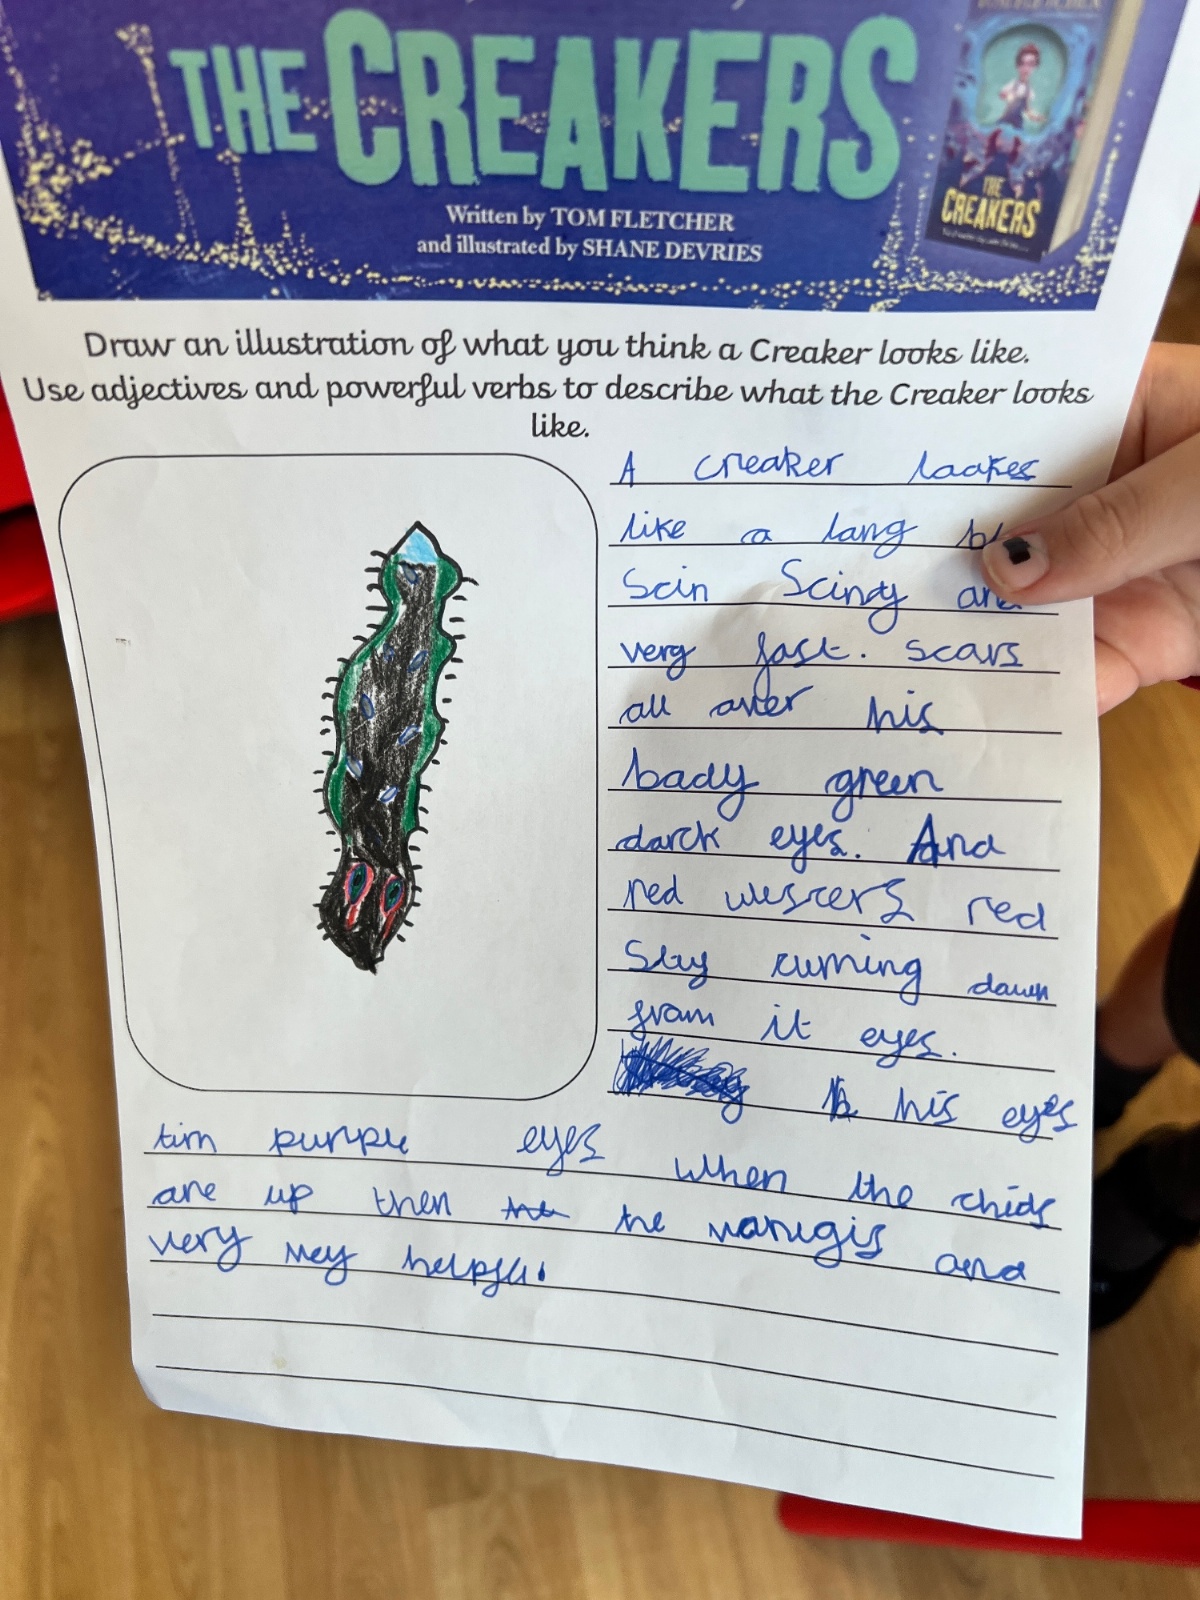 THE CREAKERS
Written by TOM FLETCHER
and illustrated by SHANE DEVRIES
TOM FLETCHER
THE
CREAKERS
Draw an illustration of what you think a Creaker looks like.
Use adjectives and powerful verbs to describe what the Creaker looks
like.
A creaker laakes
like a lang
Scin Scindy and
very fast. scars
all aver his
bady green
darck eyes. And
red wescers red
Slay runing dawn
fram it eyes.
his eyes
tirn purple eyes when the chids
are up then the
very ney and